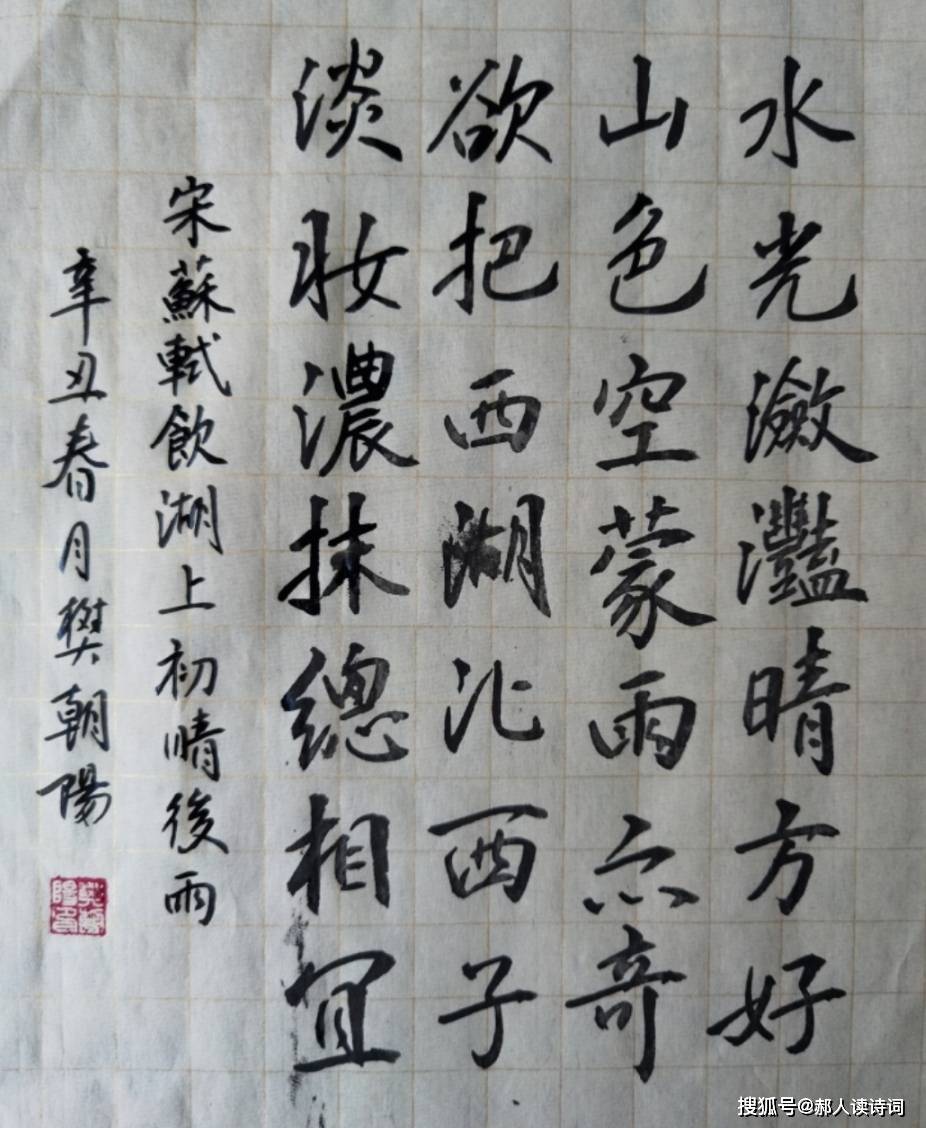 水光瀲灩晴方好
山色空蒙雨亦奇
欲把西湖比西子
淡妝濃抹總相宜
宋蘇軾飲湖上初晴後雨
辛丑春月樊朝陽
搜狐号@郝人读诗词